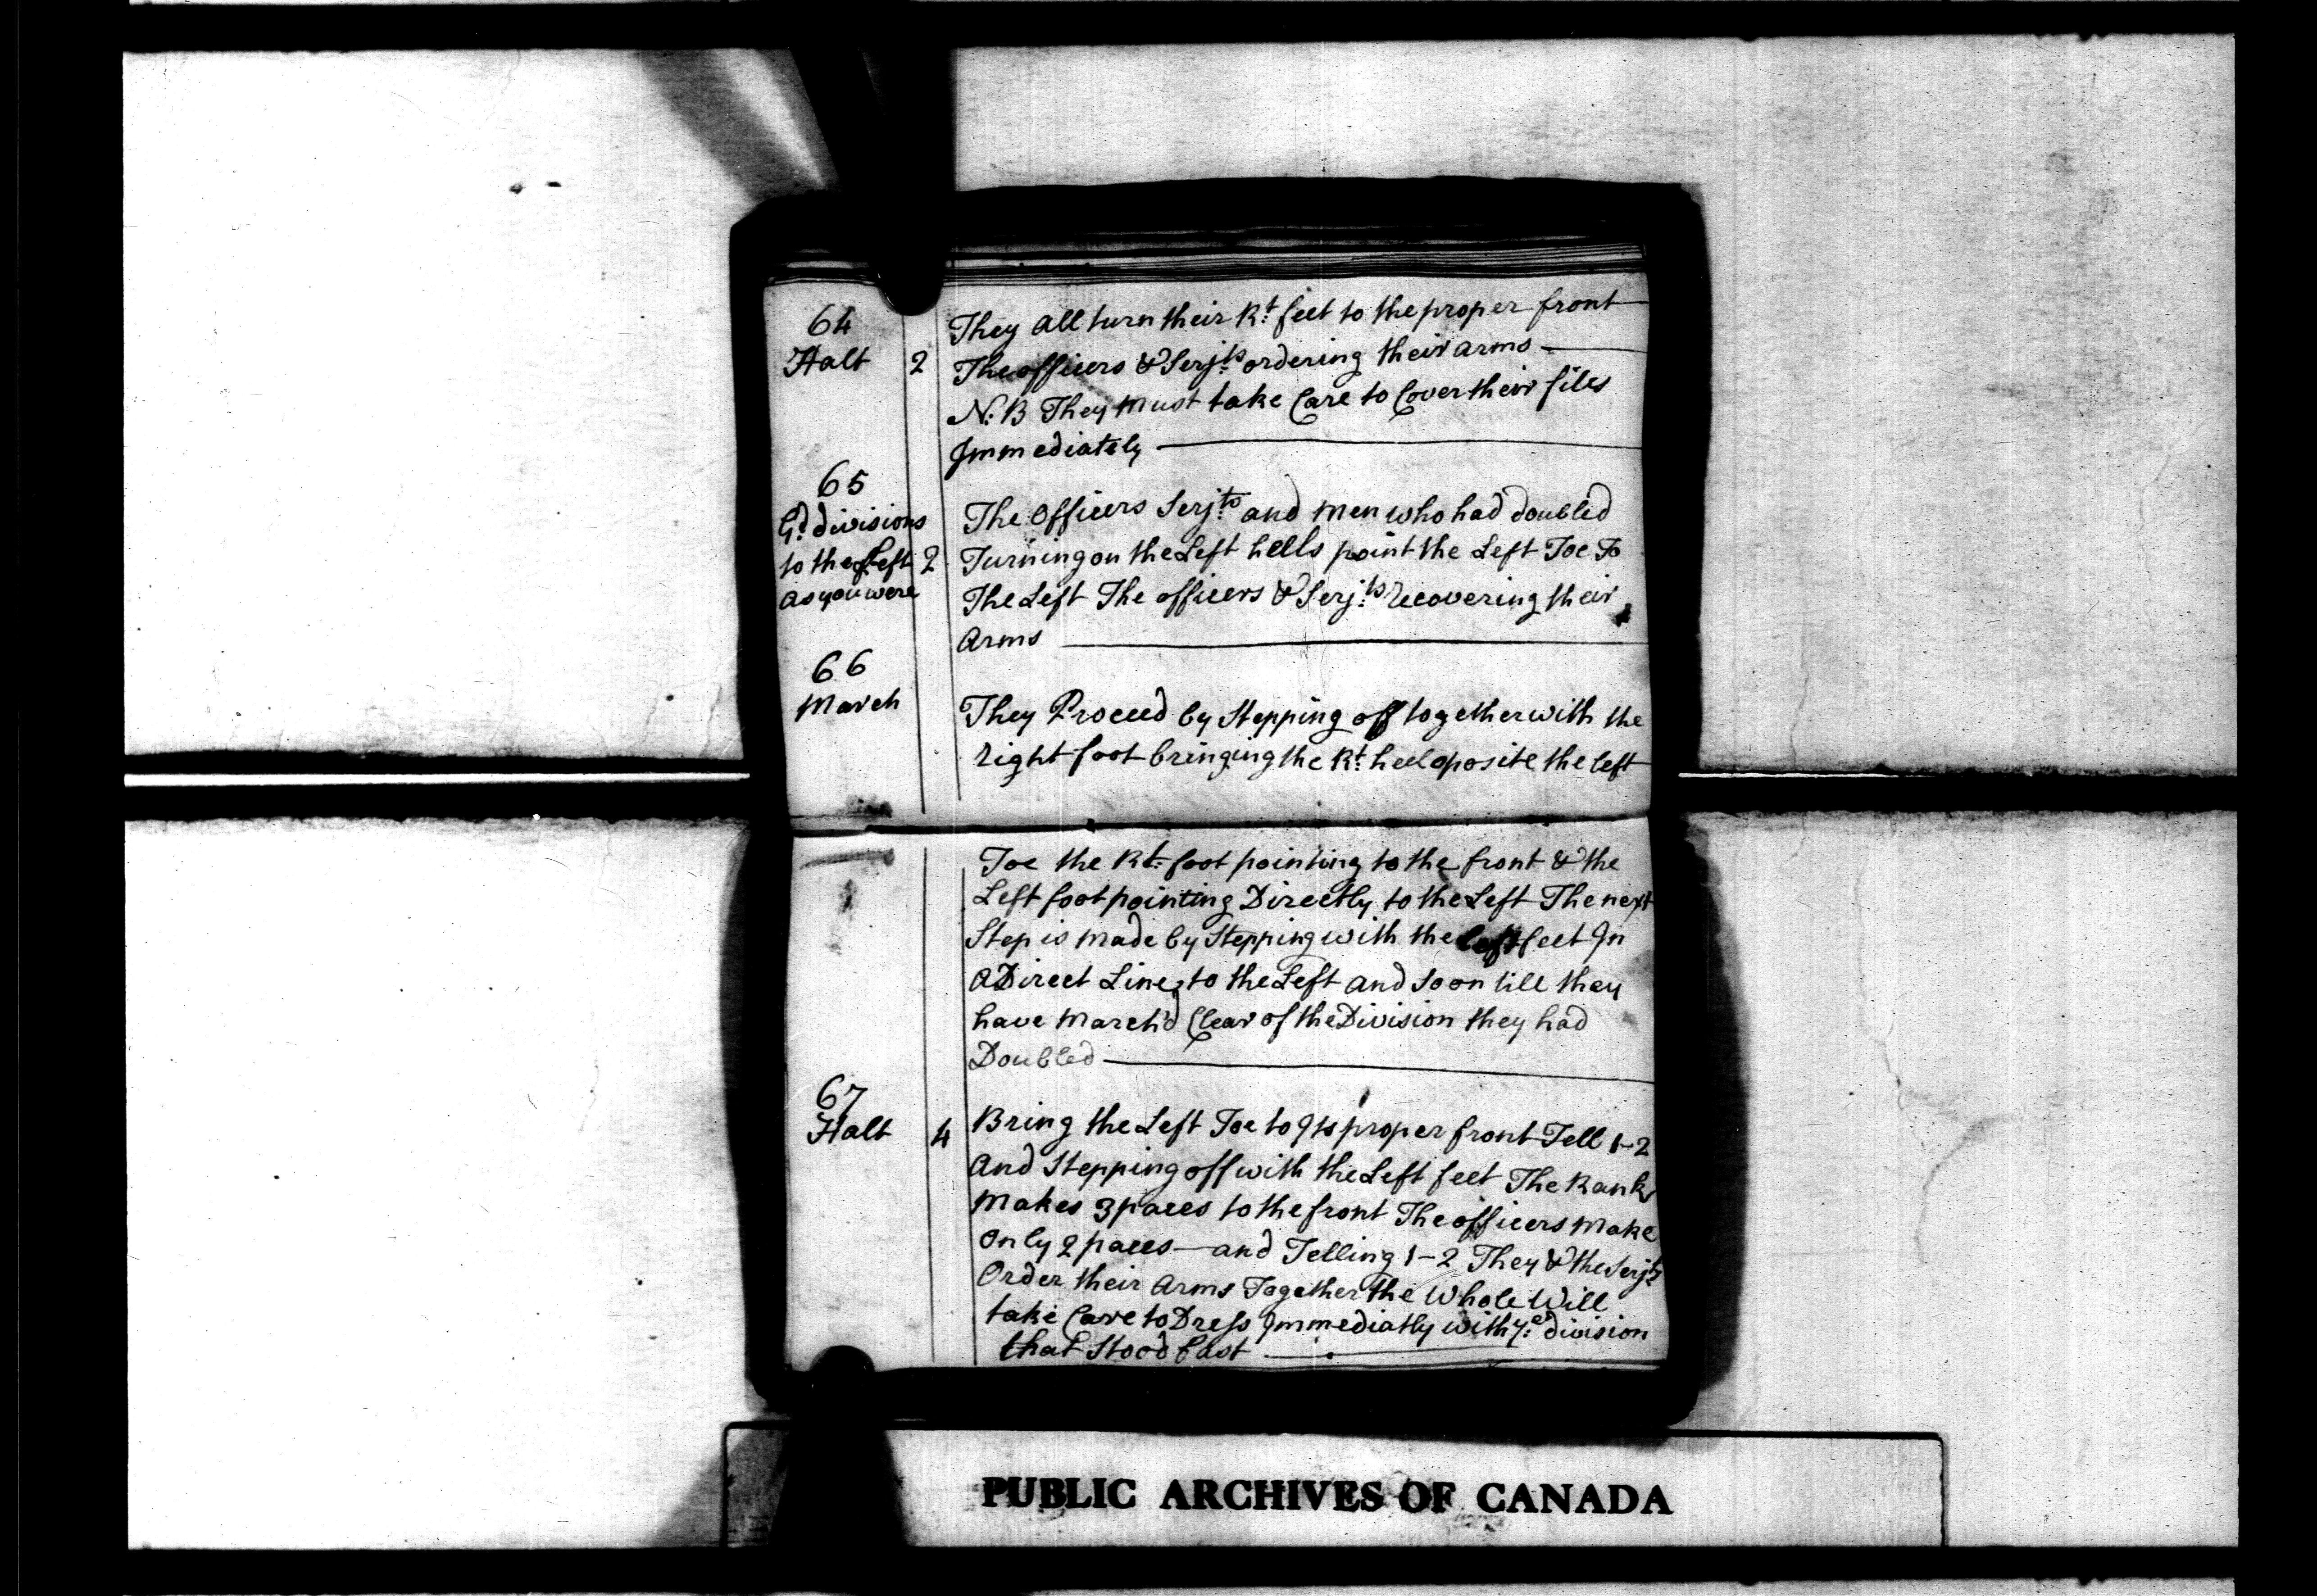 64
Halt 2
They all turn their Rt. feet to the proper front
The officers & Serjts. ordering their arms
N:B They Must take Care to Cover their files
Immediately
65
Gd. divisions
to the Left 2
as you were
The Officers Serjts. and men who had doubled
Turning on the Left hells point the Left Toe To
The Left The officers & Serjts. recovering their
Arms
66
March
They Proceed by Stepping off together with the
right foot bringing the Rt. heel oposite the left
Toe the Rt. foot pointing to the front & the
Left foot pointing Directly to the Left The next
Step is made by Stepping with the left feet In
a Direct Line to the Left and so on till they
have March'd Clear of the Division they had
Doubled
67
Halt 4
Bring the Left Toe to Its proper front Tell 1-2
And Stepping off with the Left feet The Ranks
Makes 3 paces to the front The officers Make
Only 2 paces — and Telling 1-2 They & the Serjts.
Order their Arms Together the Whole Will
take Care to Dress Immediatly with ye. division
that Stood fast
PUBLIC ARCHIVES OF CANADA